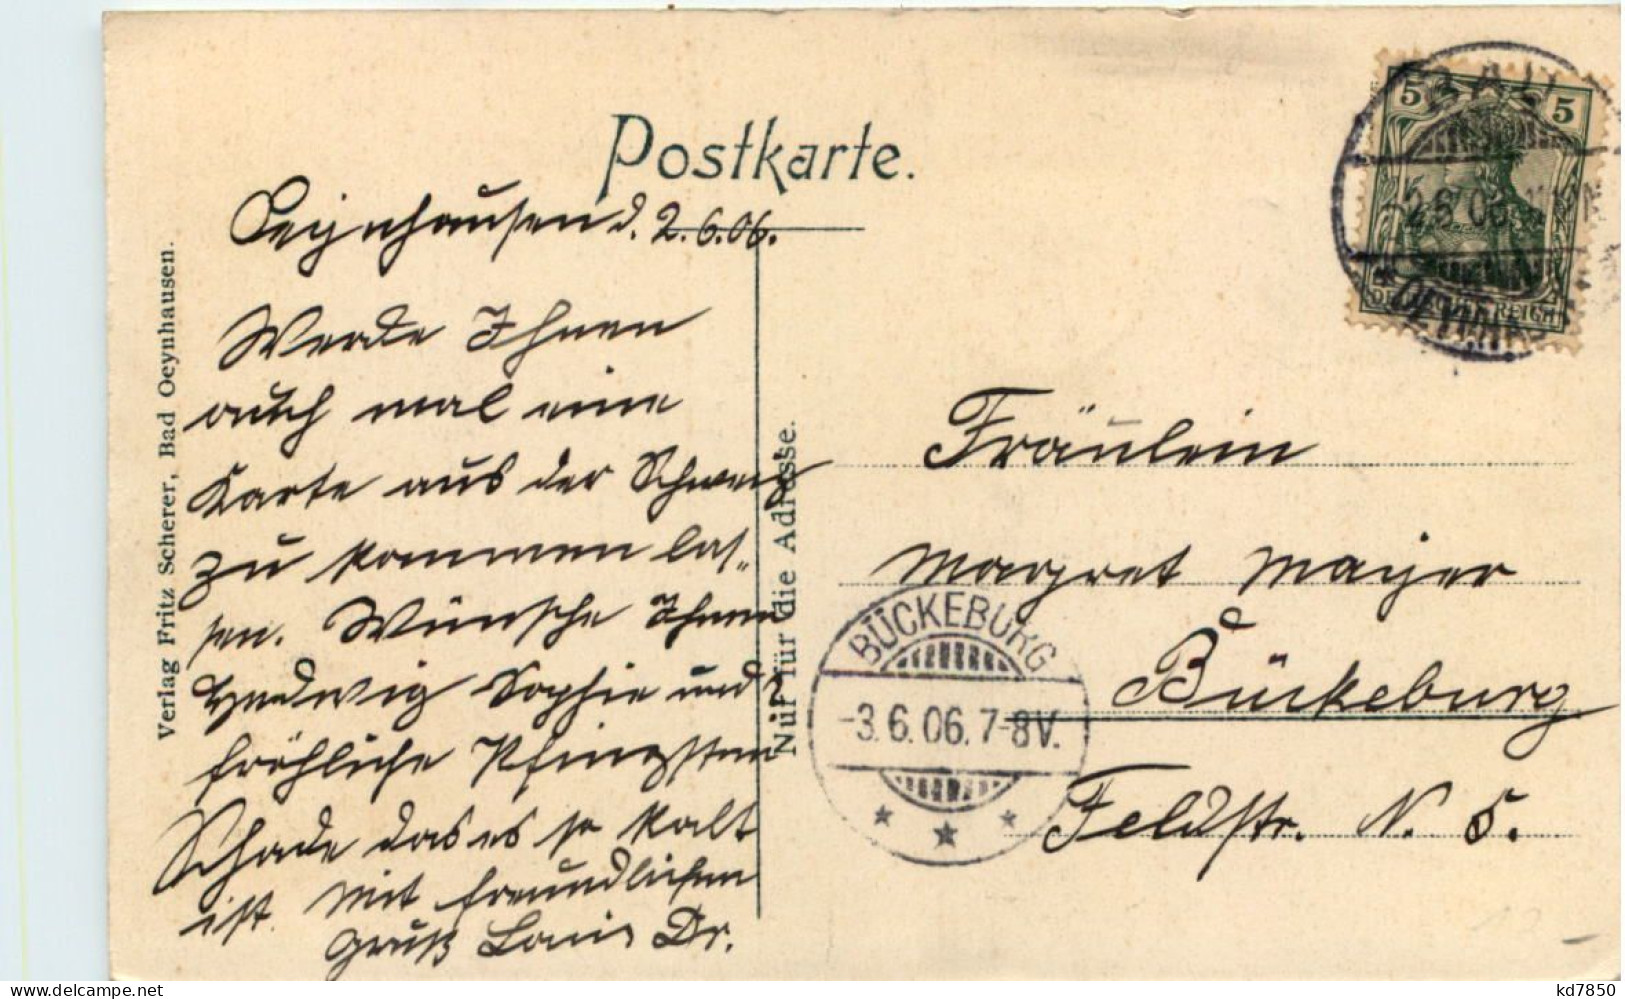 Postkarte.
Oeynhausen d. 2.6.06.
Werde Ihnen
auch mal eine
Karte aus der Schweiz
zu kommen las-
sen. Wünsche Ihnen
Hedwig Sophie und
fröhliche Pfingsten
Schade das es so kalt
ist. Mit freundlichen
Gruß Louis Dr.
Verlag Fritz Scherer, Bad Oeynhausen.
Nur für die Adresse.
5 5
BAD
-2.6.06
* OEYNHAUSEN
REICH
Fräulein
Margret Mayer
Bückeburg
Feldstr. N. 5.
BÜCKEBURG
-3.6.06.7-8V.
kd7850